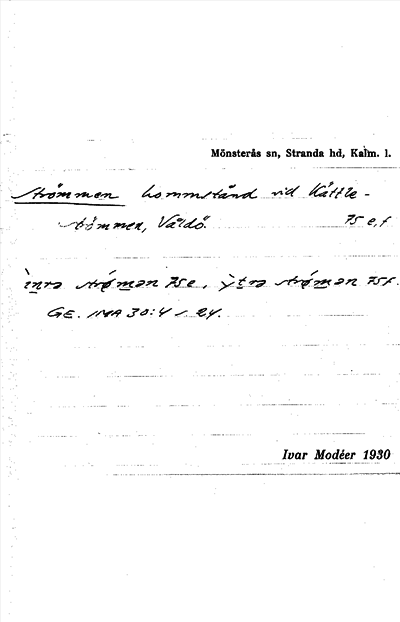 Mönsterås sn, Stranda hd, Kalm. l.
Strömmen kommstånd vid Kåttle-
strömmen, Valdö. 75 e, f
ìnrə strǿmən 75e, ỳtrə strǿmən 75f.
GE. IMA 30:4 s. 24.
Ivar Modéer 1930